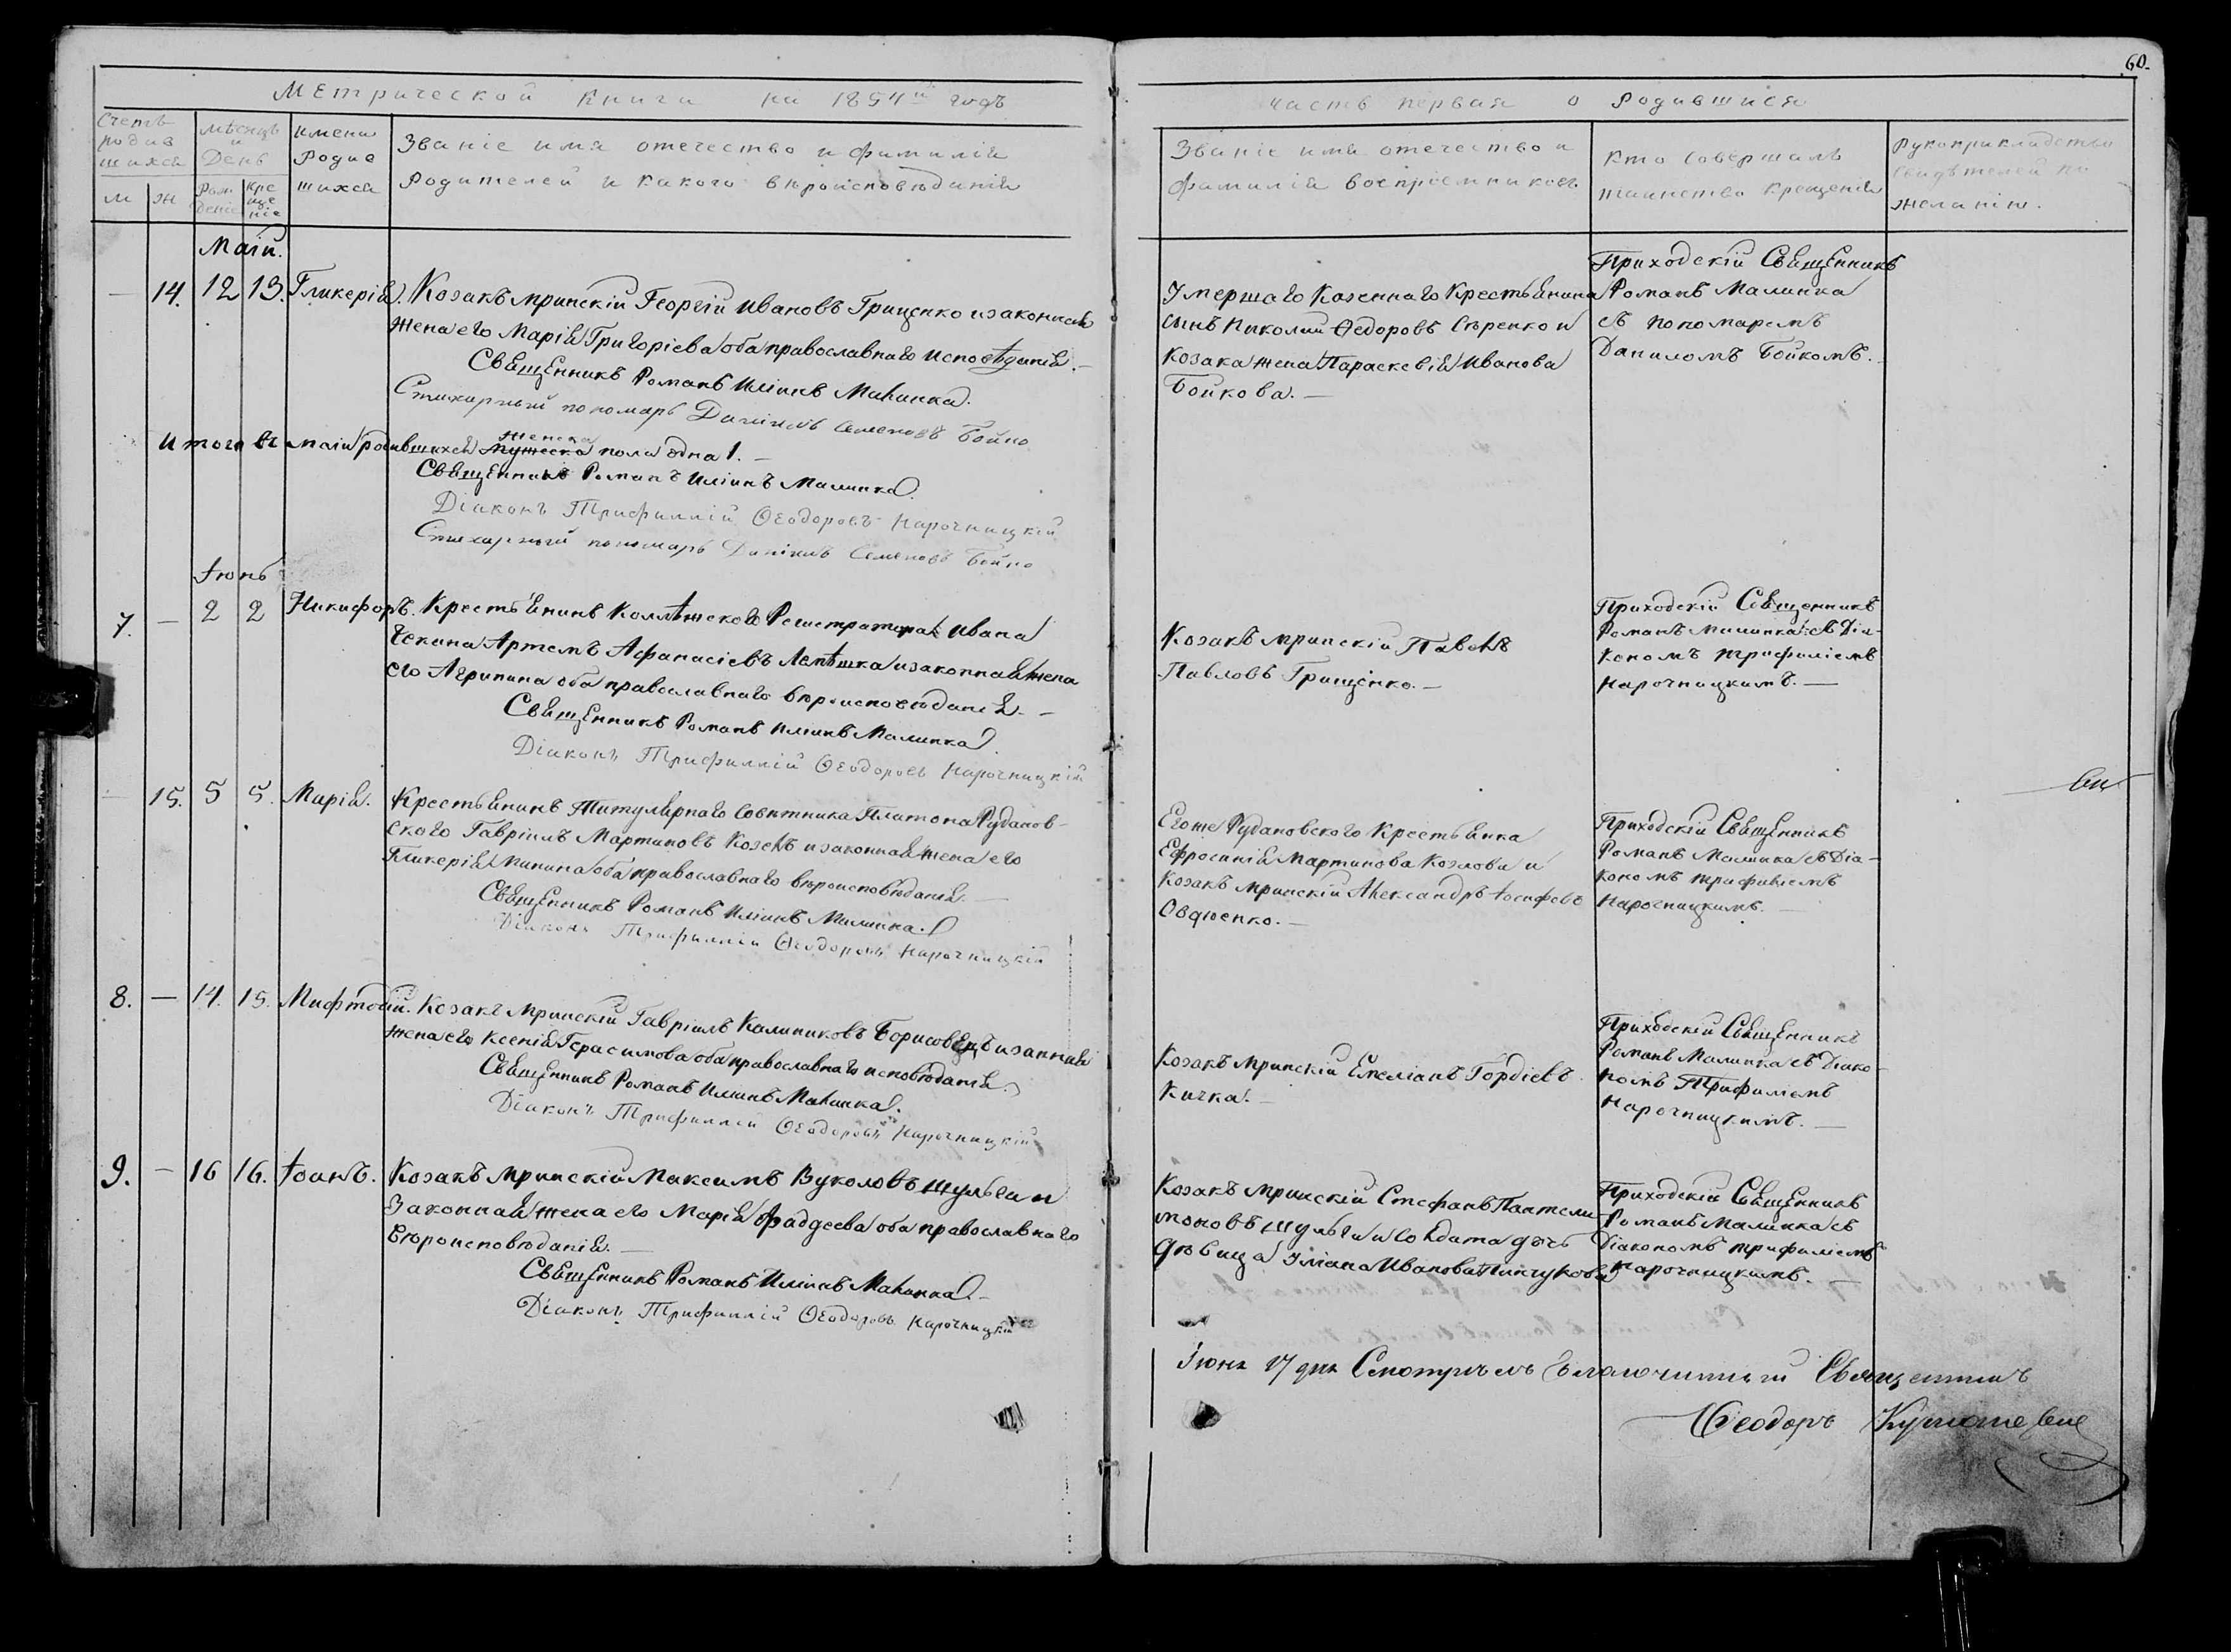 60.
Метрической книги на 1854й годъ
часть первая о Родившихся
Счетъ
родив
шихся
м
ж
мѣсяцъ
и
День
Рож
деніе
Кре
ще
ніе
имена
Родив
шихся
Званіе имя отечество и фамилія
Родителей и какого вѣроисповѣданія
Званіе имя отечество и
фамилія воспріемниковъ
Кто совершалъ
таинство крещенія
Рукоприкладство
свидѣтелей по
желанію.
Маій.
14. 12 13. Гликерія. Козакъ мринскій Георгій Ивановъ Грищенко и законная
жена его Марія Григоріева оба православнаго исповѣданія.—
Священникъ Романъ Иліинъ Малинка.
Стихарный пономарь Даніилъ Семеновъ Бойко
Умершаго Казеннаго Крестьянина
сынъ Николай Ѳедоровъ Сѣренко и
козака жена Параскевія Иванова
Бойкова.—
Приходскій Священникъ
Романъ Малинка
съ пономаремъ
Даниломъ Бойкомъ.
Итого въ маіи родившихся мужеска женска пола одна 1.—
Священникъ Романъ Иліинъ Малинка.
Діаконъ Трифиллій Ѳеодоровъ Нарочницкій
Стихарный пономарь Даніилъ Семеновъ Бойко
Іюнь
7. — 2 2 Никифоръ. Крестьянинъ Коллѣжского Регистратора Ивана
Чекина Артемъ Афанасіевъ Лепѣшка и законная жена
его Агрипина оба православнаго вѣроисповѣданія.—
Священникъ Романъ Иліинъ Малинка.
Діаконъ Трифиллій Ѳеодоровъ Нарочницкій
Козакъ мринскій Павелъ
Павловъ Грищенко.—
Приходскій Священникъ
Романъ Малинка съ Діа-
кономъ трифиліемъ
Нарочницкимъ.—
— 15. 5 5. Марія. Крестьянинъ Титулярнаго Совѣтника Платона Рудановского
Гавріилъ Мартиновъ Козелъ и законная жена его
Гликерія оба православнаго вѣроисповѣданія.—
Священникъ Романъ Иліинъ Малинка.
Діаконъ Трифиллій Ѳеодоровъ Нарочницкій
Егоже Рудановского Крестьянка
Ефросинія Мартинова Козлова и
Козакъ мринскій Александръ Іосифовъ
Овдіенко.—
Приходскій Священникъ
Романъ Малинка съ Діа-
кономъ трифиліемъ
Нарочницкимъ.—
8. — 14. 15. Мифтодій. Козакъ мринскій Гавріилъ Калиниковъ Борисовецъ и законная
жена его Ксенія Герасимова оба православнаго исповѣданія.
Священникъ Романъ Иліинъ Малинка.
Діаконъ Трифиллій Ѳеодоровъ Нарочницкій
Козакъ мринскій Емеліанъ Гордіевъ
Кичка.—
Приходскій Священникъ
Романъ Малинка съ Діако-
номъ Трифиліемъ
Нарочницкимъ.—
9. — 16 16. Іоанъ. Козакъ мринскій Максимъ Вуколовъ Шульга и
Законная жена его Марія Фаддеева оба православнаго
Вѣроисповѣданія.—
Священникъ Романъ Иліинъ Малинка.—
Діаконъ Трифиллій Ѳеодоровъ Нарочницкій
Козакъ мринскій Стефанъ Пантели-
моновъ Шульга и солдата дочь
дѣвица Уліана Иванова Пинчукова
Приходскій Священникъ
Романъ Малинка съ
Діакономъ трифиліемъ
Нарочницкимъ.—
Іюня 17 дня Смотрѣлъ Благочинный Священникъ
Ѳеодоръ